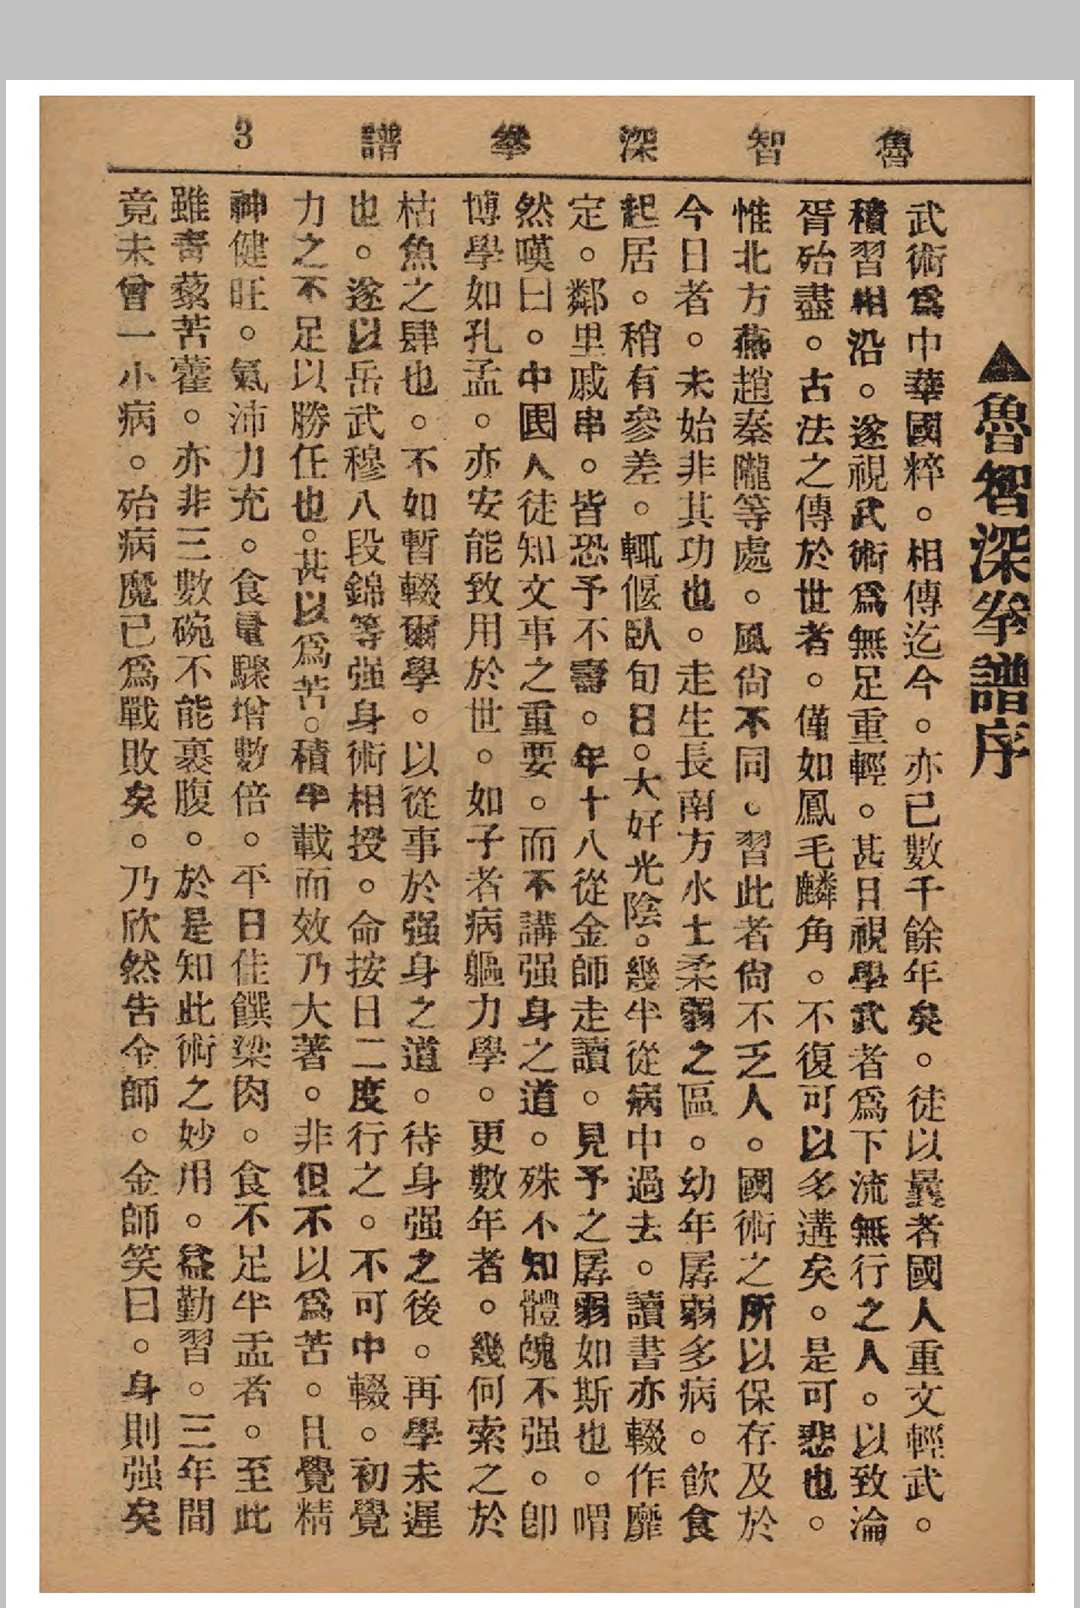 魯智深拳譜 3
▲魯智深拳譜序
武術爲中華國粹。相傳迄今。亦已數千餘年矣。徒以曩者國人重文輕武。
積習相沿。遂視武術爲無足重輕。甚日視學武者爲下流無行之人。以致淪
胥殆盡。古法之傳於世者。僅如鳳毛麟角。不復可以多遘矣。是可悲也。
惟北方燕趙秦隴等處。風尙不同。習此者尙不乏人。國術之所以保存及於
今日者。未始非其功也。走生長南方水土柔弱之區。幼年孱弱多病。飮食
起居。稍有參差。輒偃臥旬日。大好光陰。幾半從病中過去。讀書亦輟作靡
定。鄰里戚串。皆恐予不壽。年十八從金師走讀。見予之孱弱如斯也。喟
然嘆曰。中國人徒知文事之重要。而不講强身之道。殊不知體魄不强。卽
博學如孔孟。亦安能致用於世。如子者病軀力學。更數年者。幾何索之於
枯魚之肆也。不如暫輟爾學。以從事於强身之道。待身强之後。再學未遲
也。遂以岳武穆八段錦等强身術相授。命按日二度行之。不可中輟。初覺
力之不足以勝任也。甚以爲苦。積半載而效乃大著。非但不以爲苦。且覺精
神健旺。氣沛力充。食量驟增數倍。平日佳饌梁肉。食不足半盂者。至此
雖靑藜苦藿。亦非三數碗不能裹腹。於是知此術之妙用。益勤習。三年間
竟未曾一小病。殆病魔已爲戰敗矣。乃欣然告金師。金師笑曰。身則强矣